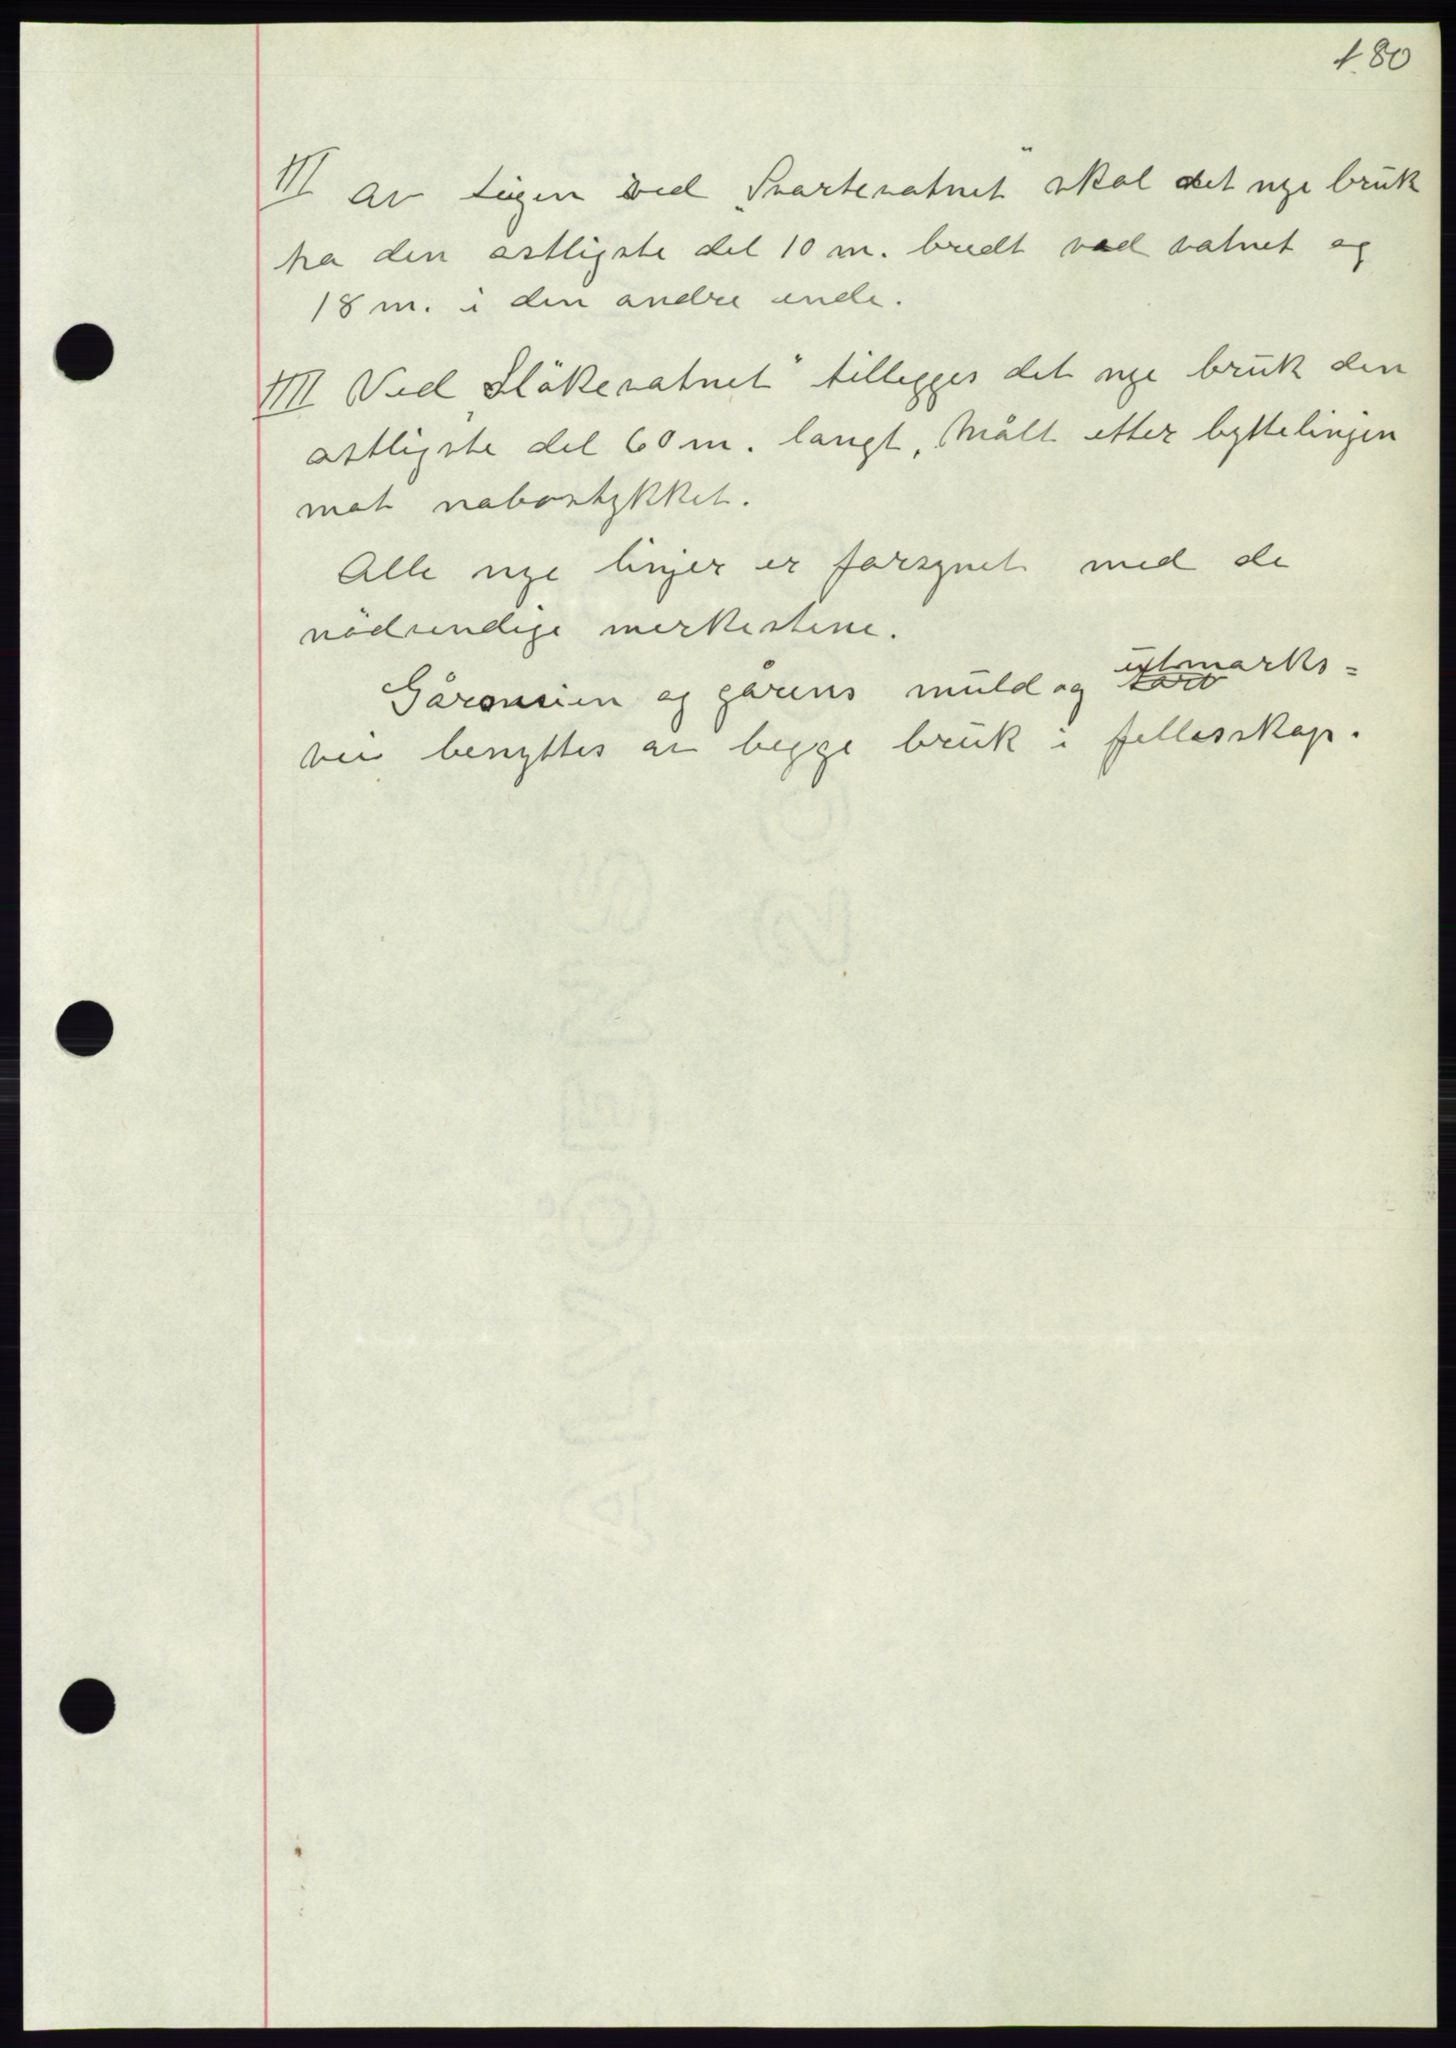 180
III Av teigen ved „Svartevatnet" skal det nye bruk
ha den østligste del 10 m. bredt ved vatnet og
18 m. i den andre ende.
IIII Ved „Slåkevatnet" tillegges det nye bruk den
østligste del 60 m. langt, målt etter byttelinjen
mot nabostykket.
Alle nye linjer er forsynet med de
nödvendige merkestene.
utmarks=
Gårdsveien og gårens muld og torv
vei benyttes av begge bruk i fellesskap.